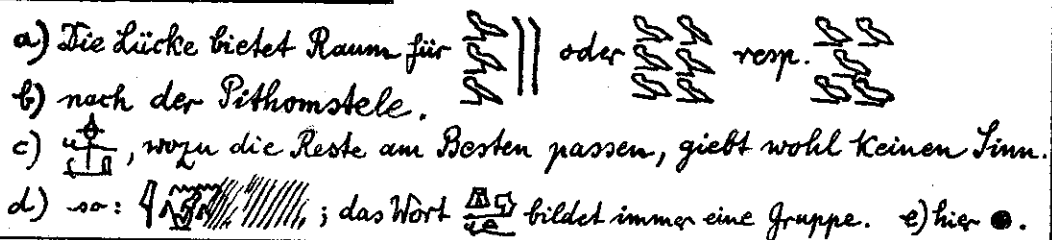 a) Die Lücke bietet Raum für oder resp.
b) nach der Pithomstele.
c) , wozu die Reste am Besten passen, giebt wohl keinen Sinn.
d) so: ; das Wort bildet immer eine Gruppe. e) hier ● .